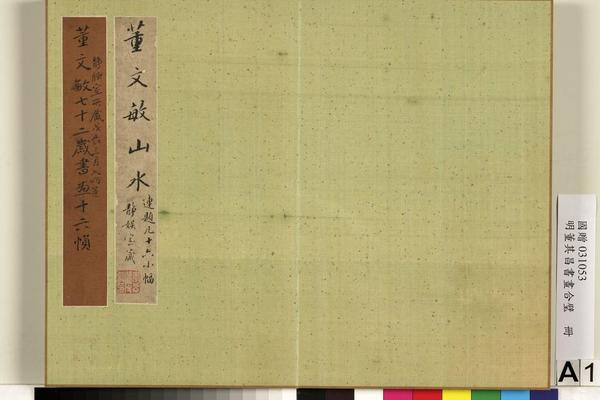 董文敏山水
連題凡十六小幅
靜娛室藏
董文敏七十二歲書畫十六幀
國贈 031053
明董其昌書畫合璧 冊
A1